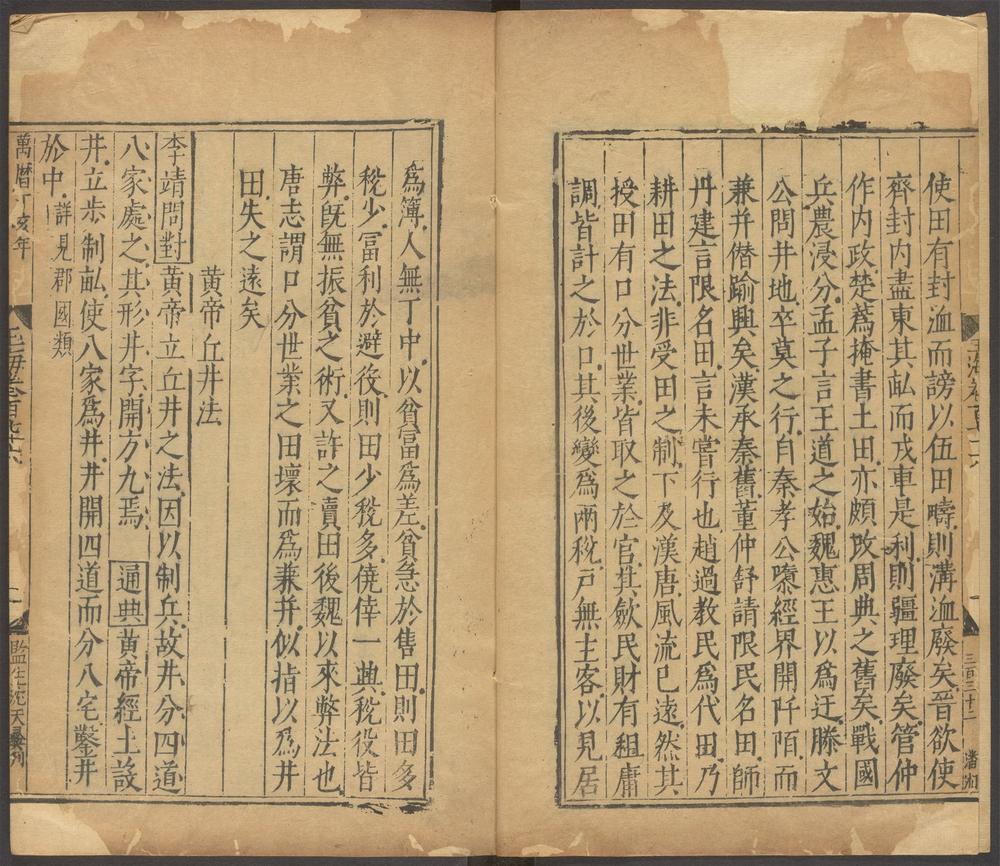 使田有封洫而謗以伍田疇則溝洫廢矣晉欲使
齊封内盡東其畆而戎車是利則疆理廢矣管仲
作内政楚蒍掩書土田亦頗改周典之舊矣戰國
兵農浸分孟子言王道之始魏惠王以爲迂滕文
公問井地卒莫之行自秦孝公隳經界開阡陌而
兼并僣踰興矣漢承秦舊董仲舒請限民名田師
丹建言限名田言未嘗行也趙過教民爲代田乃
耕田之法非受田之制下及漢唐風流已遠然其
授田有口分世業皆取之於官其斂民財有租庸
調皆計之於口其後變爲兩稅戸無主客以見居
爲簿人無丁中以貧富爲差貧急於售田則田多
稅少冨利於避後則田少稅多僥倖一興稅役皆
弊旣無振貧之術又許之賣田後魏以來弊法也
唐志謂口分世業之田壞而爲兼并似指以爲井
田失之遠矣
黄帝丘井法
李靖問對黄帝立丘井之法因以制兵故井分四道
八家處之其形井字開方九焉 通典黄帝經土設
井立步制畆使八家爲井井開四道而分八宅鑿井
於中詳見郡國類
萬曆丁亥年
三百三十二